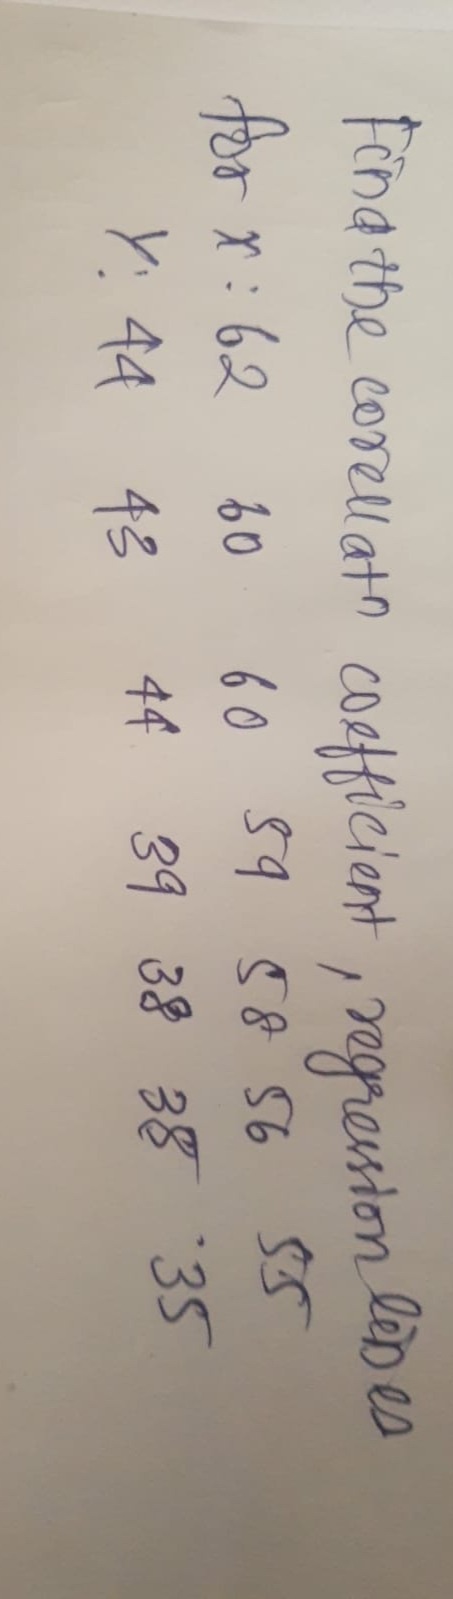 Find the corellatn coefficient, regression lines
for x: 62 60 60 59 58 56 55
Y: 44 43 44 39 38 38 35